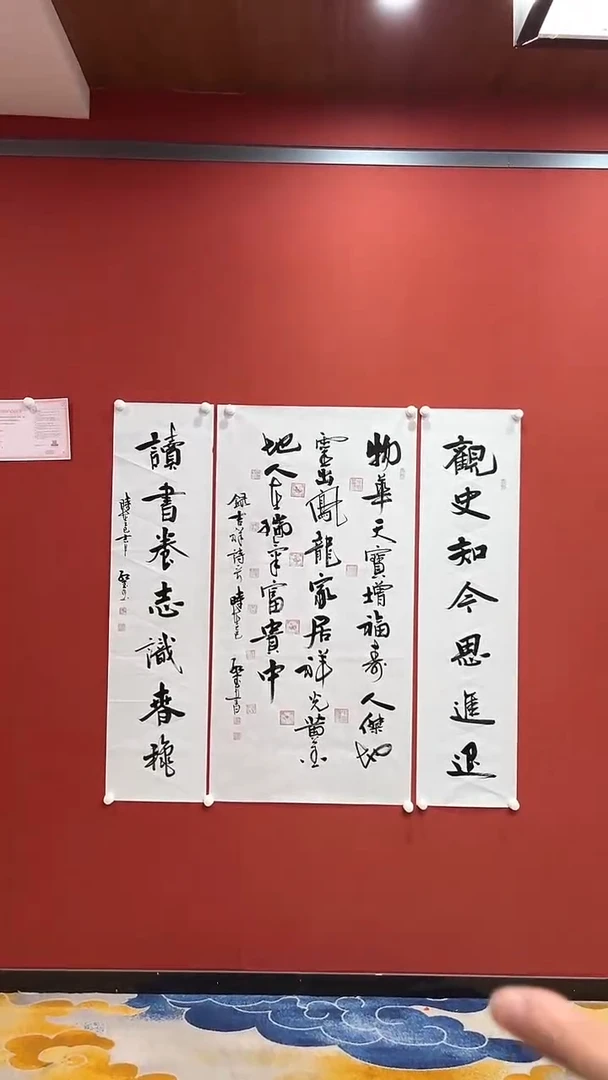 觀史知今思進退
物華天寶增福壽人傑地
靈出鳳龍家居祥光黃金
地人在瑞氣富貴中
錄吉祥詩 時
讀書養志識春秋
時